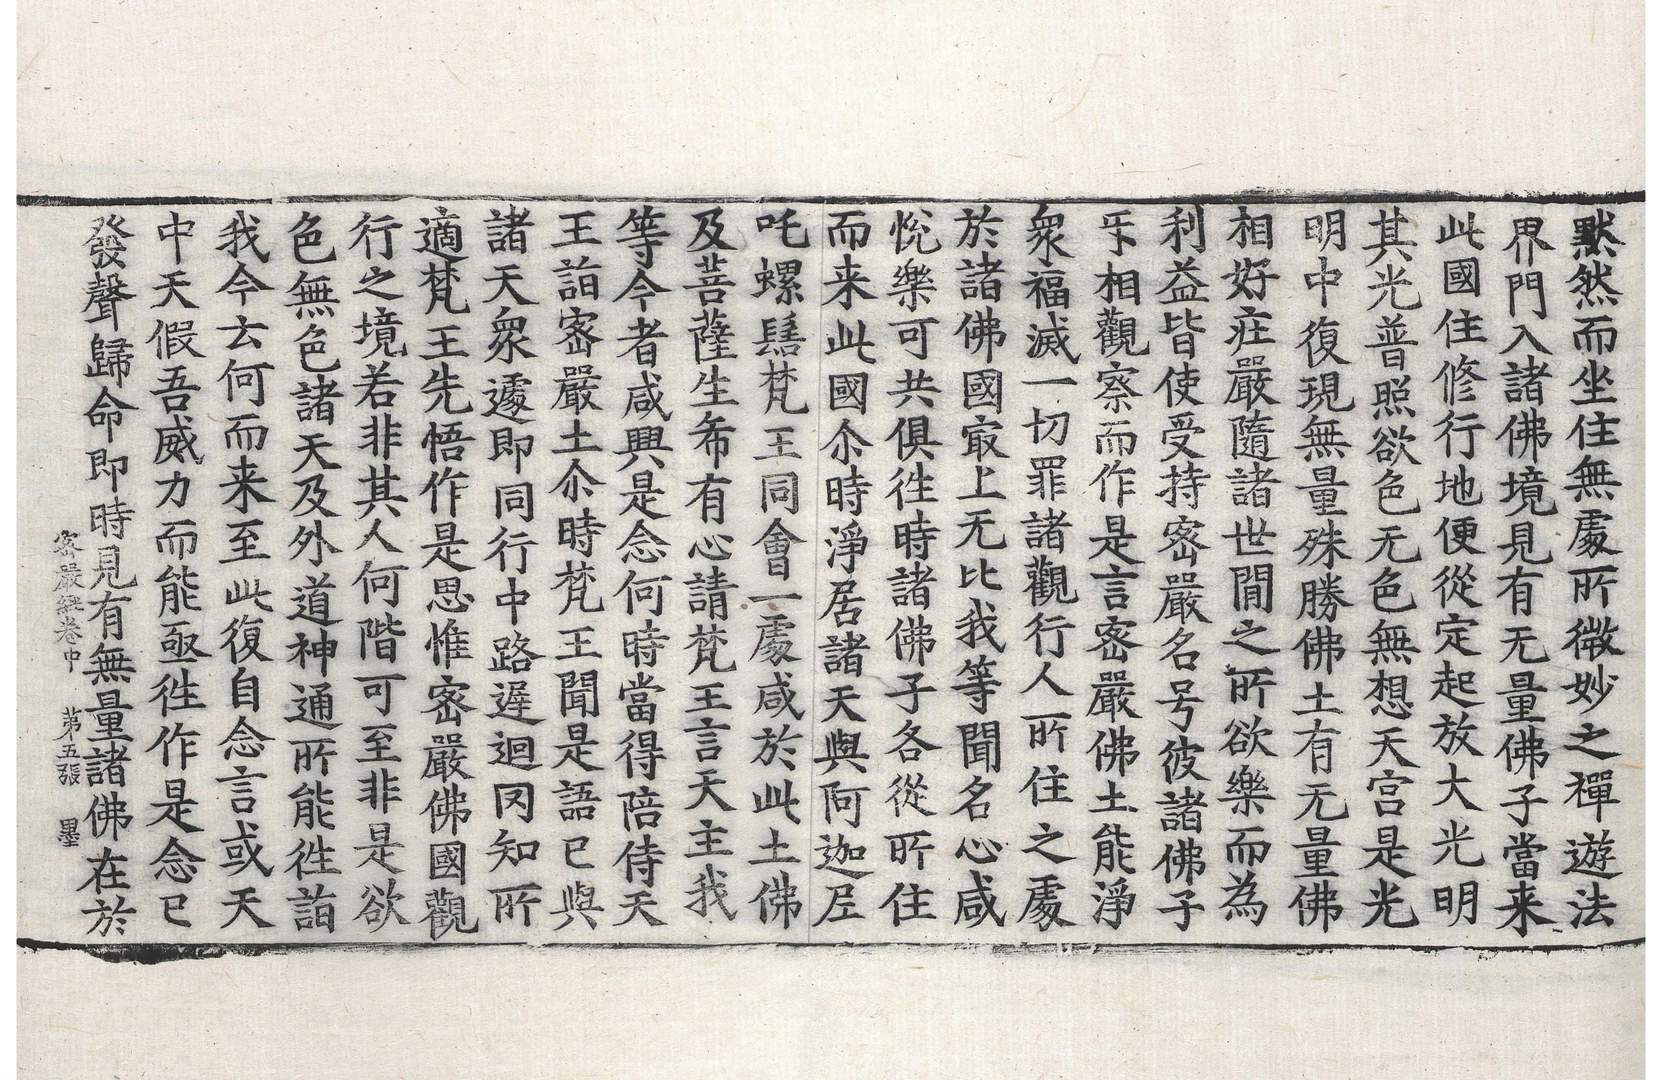 默然而坐住無處所微妙之禪遊法
界門入諸佛境見有无量佛子當来
此國住修行地便從定起放大光明
其光普照欲色无色無想天宮是光
明中復現無量殊勝佛土有无量佛
相好莊嚴隨諸世間之所欲樂而為
利益皆使受持密嚴名号彼諸佛子
乐相觀察而作是言密嚴佛土能淨
衆福滅一切罪諸觀行人所住之處
於諸佛國冣上无比我等聞名心咸
悅樂可共俱徃時諸佛子各從所住
而来此國尒時淨居諸天與阿迦尼
吒螺髻梵王同會一處咸於此土佛
及菩薩生希有心請梵王言天主我
等今者咸興是念何時當得陪侍天
王詣密嚴土尒時梵王聞是語已與
諸天衆遽即同行中路遲迴罔知所
適梵王先悟作是思惟密嚴佛國觀
行之境若非其人何階可至非是欲
色無色諸天及外道神通所能徃詣
我今云何而来至此復自念言或天
中天假吾威力而能亟徃作是念已
發聲歸命即時見有無量諸佛在於
密嚴經卷中 第五張 墨